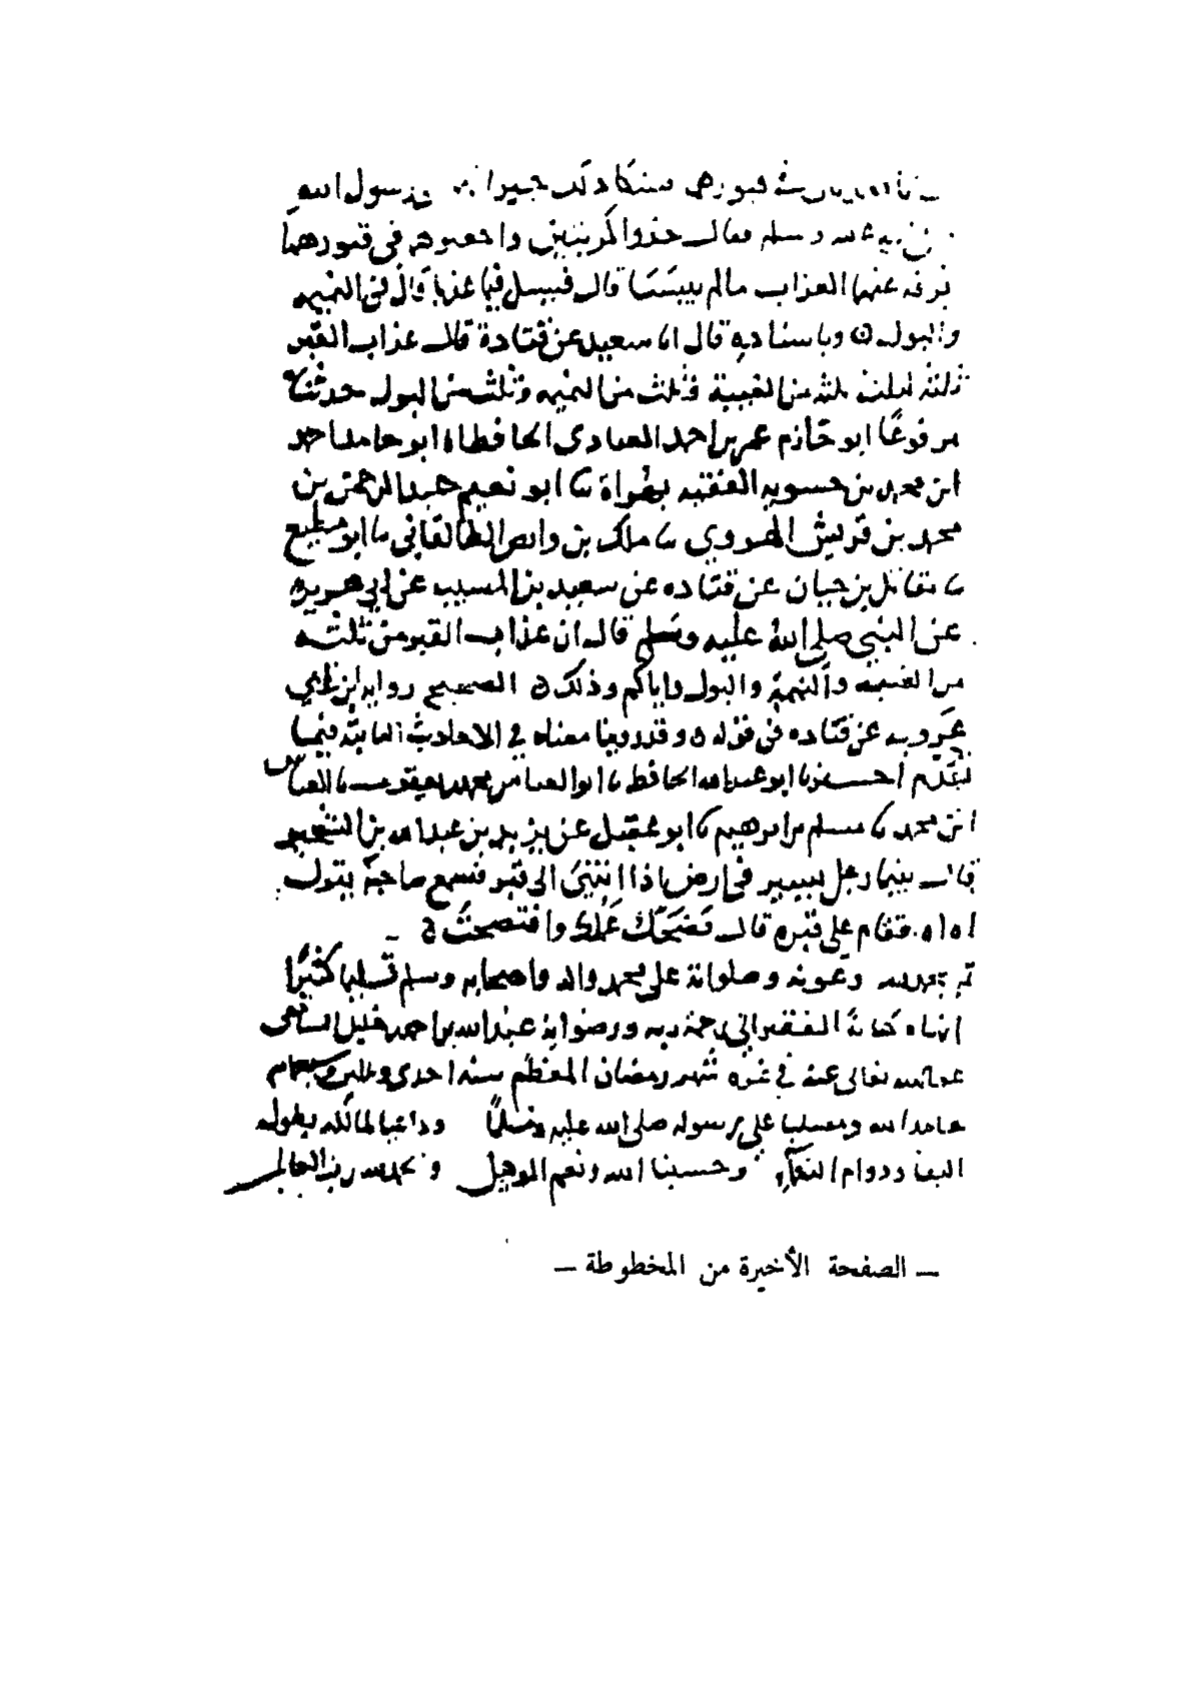 في قبورهم فشكا ذلك جيرا رسول الله
وسلم فقال خذوا كربتين واجعلوهم في قبورهما
يرفه عنهما العذاب مالم ييبسا قال فقيل فيما عذبا قال في النميمه
والبول وباسناده قال انا سعيد عن قتادة قال عذاب القبر
ثلثه اثلاث ثلثه من الغيبة وثلث من النميمه وثلث من البول حدثنا
مرفوعًا ابو حازم عمر بن احمد العبادى الحافظ انا ابو حامد احمد
ابن محمد بن حسويه الفقيه بهراة نا ابو نعيم عبد الرحمن بن
محمد بن قريش الهروي نا ملك بن وابص الطالقاني نا ابو مطيع
نا مقاتل بن حيان عن قتاده عن سعيد بن المسيب عن ابي هريره
عن النبي صلى الله عليه وسلم قال ان عذاب القبر من ثلثه
من الغيبه والنميمة والبول واياكم وذلك الصحيح روايه ابن ابي
عروبه عن قتاده من قوله وقد روينا معناه في الاحاديث الثابته فيما
تقدم اخبرنا ابو عبد الله الحافظ نا ابو العباس محمد بن يعقوب نا العباس
ابن محمد نا مسلم بن ابرهيم نا ابو عقيل عن يزيد بن عبد الله بن الشخير
قال بينما رجل يسير في ارض اذا انتهى الى قبر فسمع صاحبه يقول
اه اه فقام على قبره قال فضحك عملك وافتضحت
تم بحمد الله وعونه وصلواته على محمد واله واصحابه وسلم تسليما كثيرًا
انهاه كتابةً الفقير الى رحمة ربه ورضوانه عبد الله بن احمد خليل الشافعى
عفا الله تعالى عنه في غره شهر رمضان المعظم سنه احدى وثلثين وسبعمايه
حامدا لله ومصليا على رسوله صلى الله عليه ومسلمًا وداعيا لمالكه بطول
البقا ودوام النعمآء وحسبنا الله ونعم الوكيل والحمد لله رب العالمين
— الصفحة الأخيرة من المخطوطة —